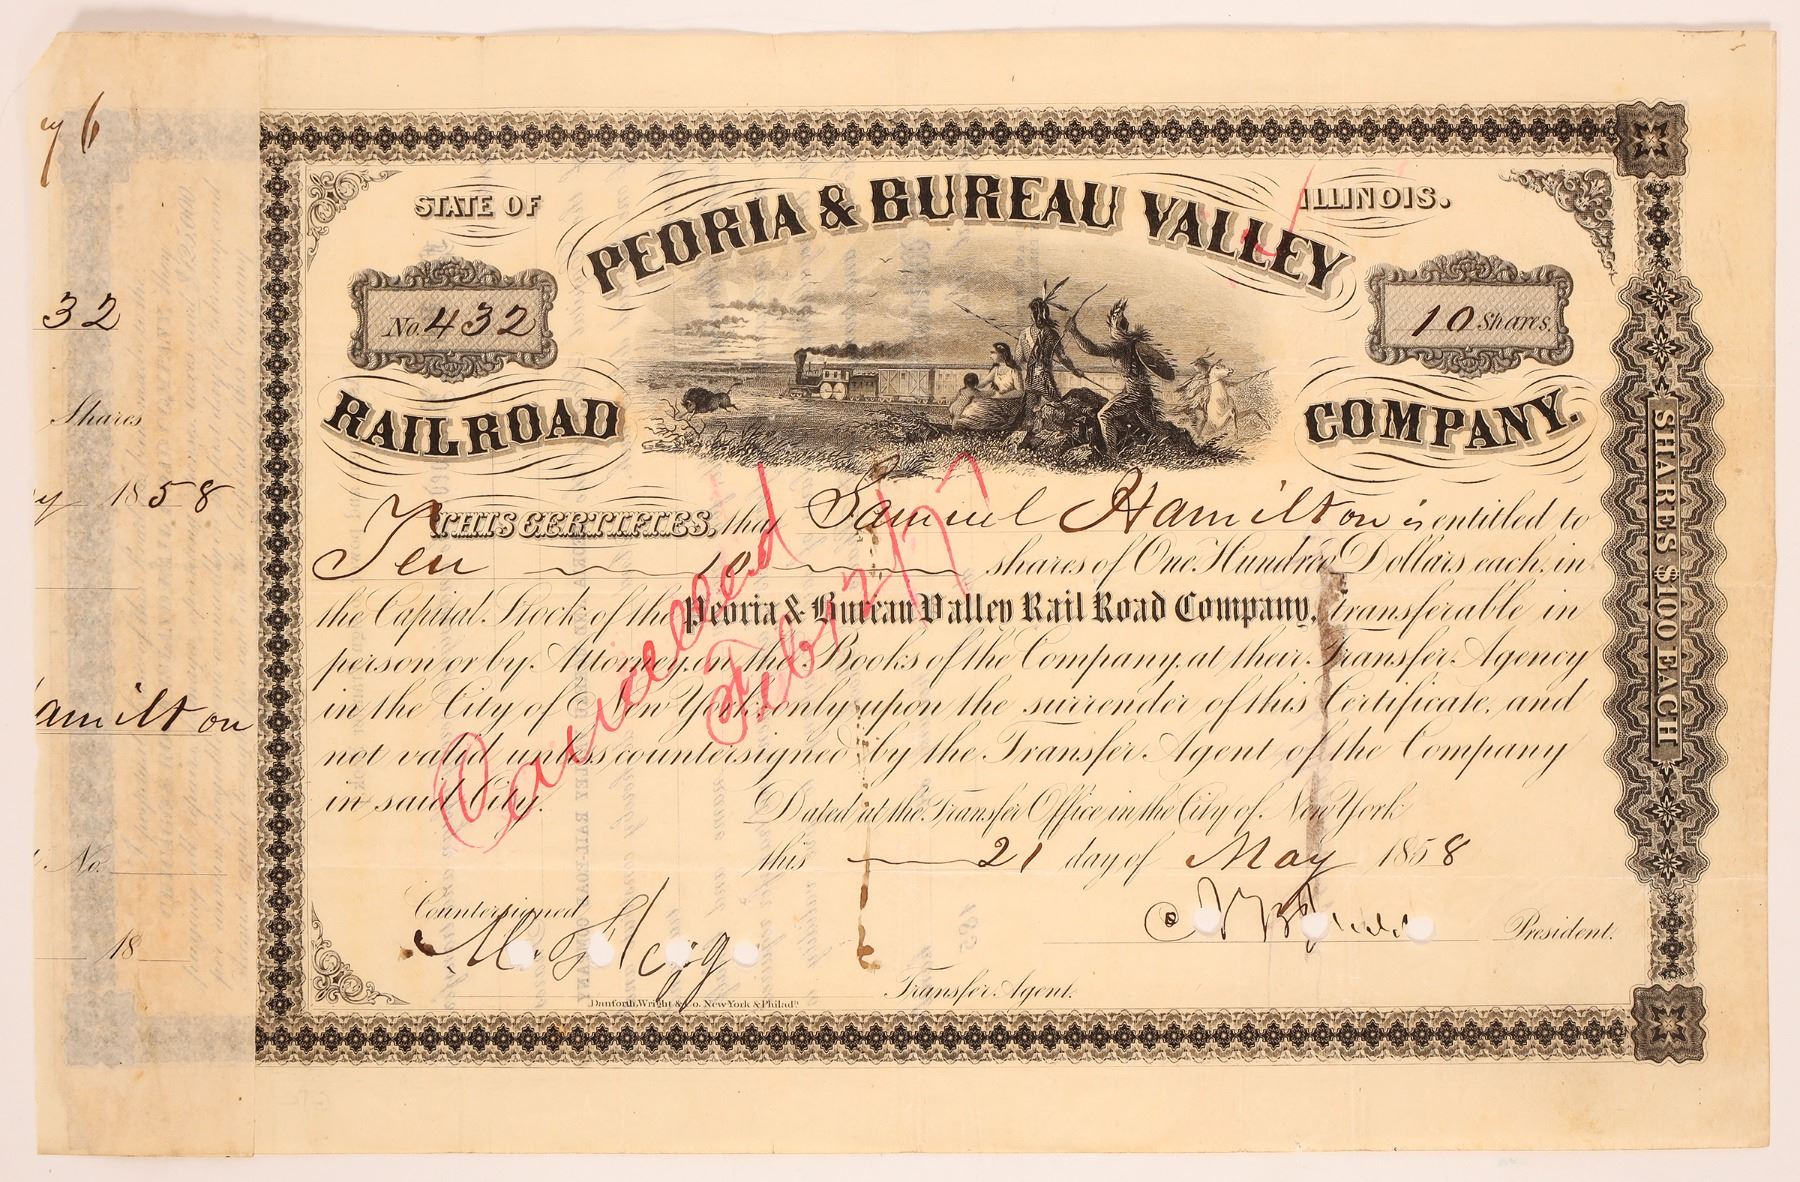 STATE OF
PEORIA & BUREAU VALLEY
ILLINOIS.
No. 432
10 Shares.
RAILROAD
COMPANY.
THIS CERTIFIES, that Samuel Hamilton is entitled to
Ten 10 shares of One Hundred Dollars each, in
the Capital Stock of the Peoria & Bureau Valley Rail Road Company, transferable in
person or by Attorney, on the Books of the Company, at their Transfer Agency
in the City of New York, only upon the surrender of this Certificate, and
not valid unless countersigned by the Transfer Agent of the Company
in said City.
Dated at the Transfer Office in the City of New York
this 21 day of May 1858
Countersigned
President.
Transfer Agent.
Danforth, Wright & Co. New York & Philada.
SHARES $100 EACH
Cancelled
Feby 2/77
32
Shares
y 1858
amilton
No.
18